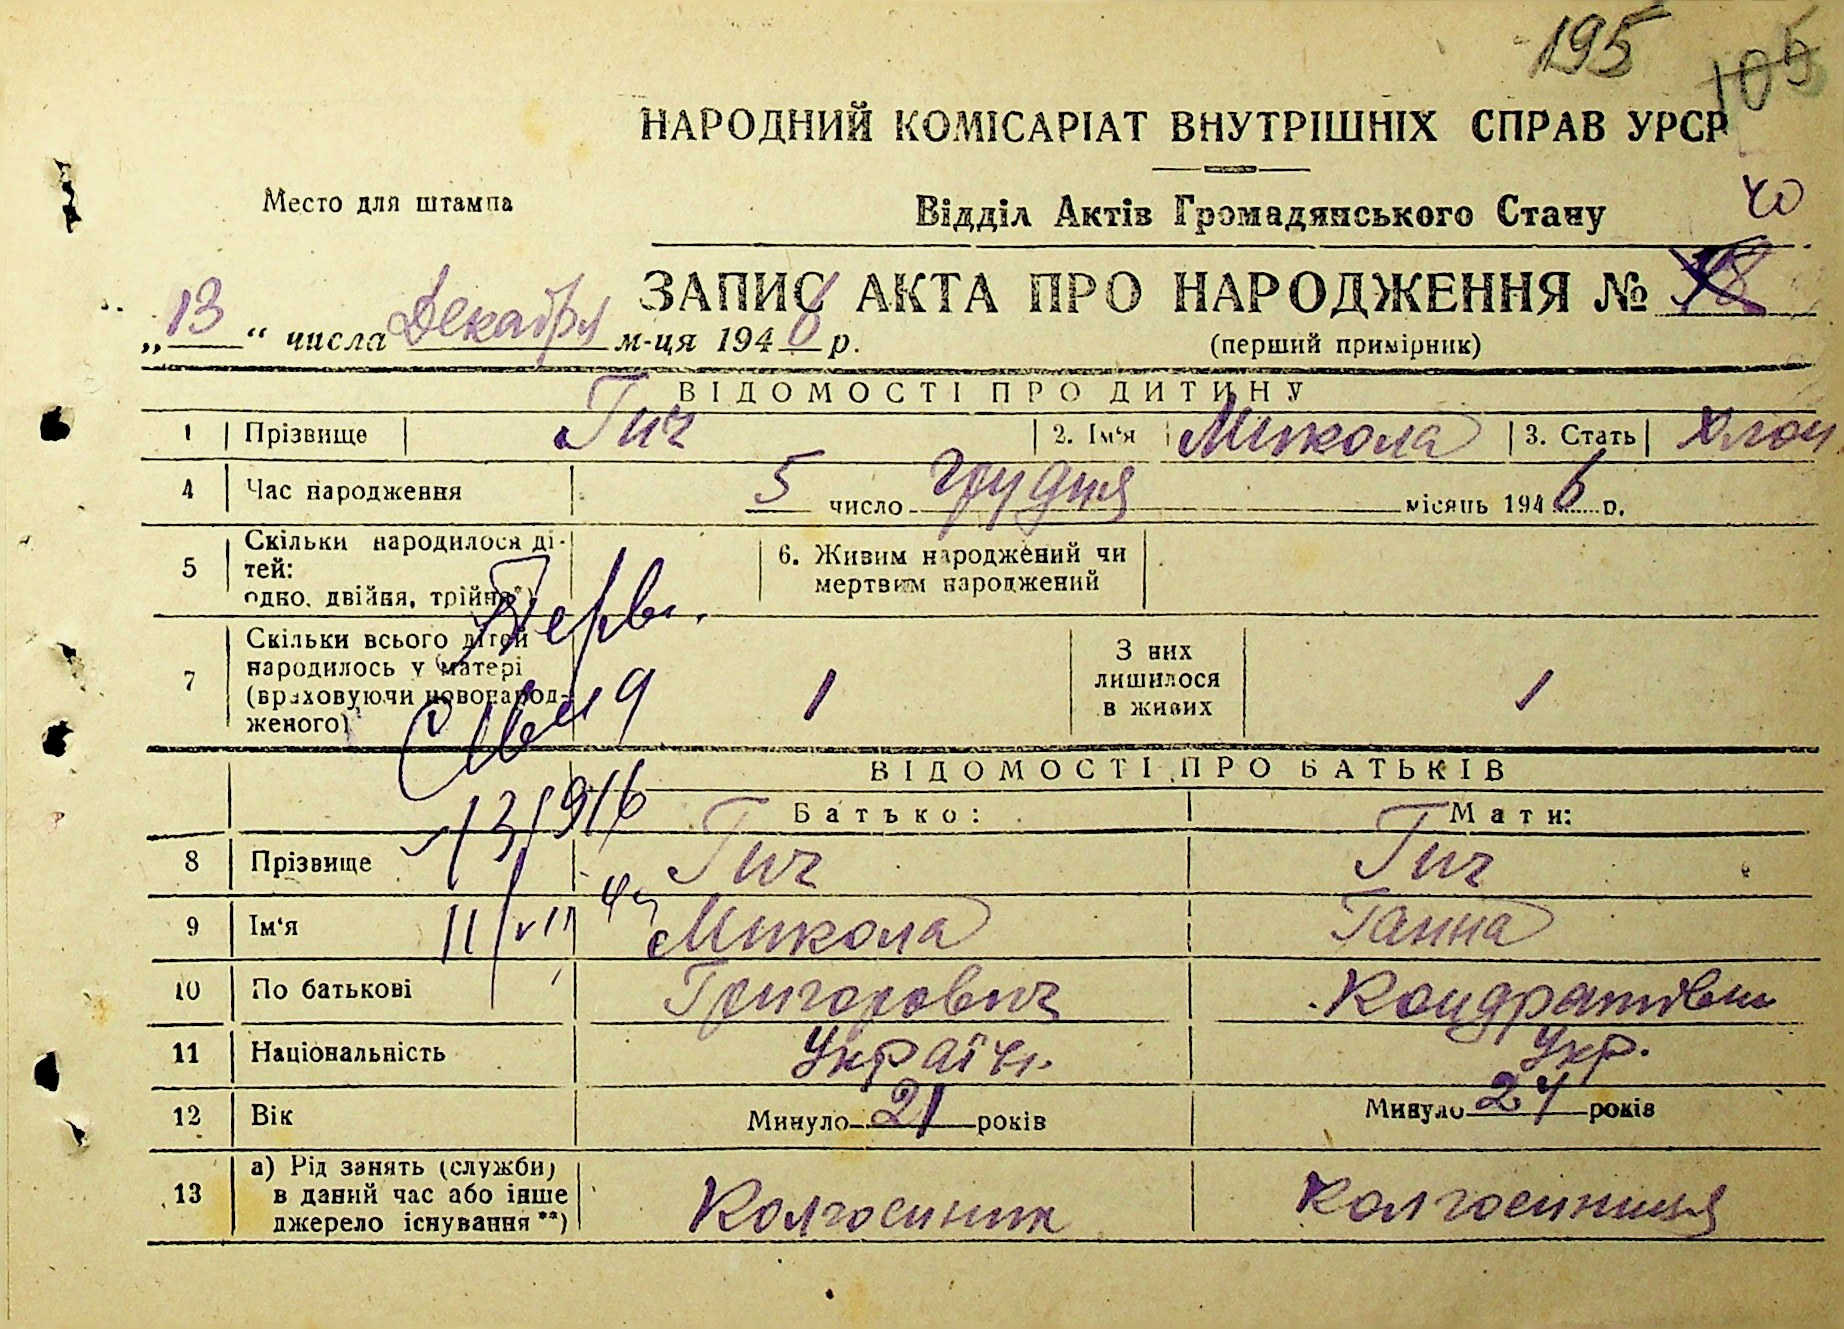 195
105
НАРОДНИЙ КОМІСАРІАТ ВНУТРІШНІХ СПРАВ УРСР
Место для штампа
Відділ Актів Громадянського Стану
40
ЗАПИС АКТА ПРО НАРОДЖЕННЯ №
„13“ числа Декабря м-ця 1946 р.
(перший примірник)
ВІДОМОСТІ ПРО ДИТИНУ
1 Прізвище Гич 2. Ім‘я Микола 3. Стать хлоп.
4 Час народження 5 число грудня місяць 1946 р.
5 Скільки народилося ді-
тей:
одно, двійня, трійня*)
6. Живим народжений чи
мертвим народжений
Перв.
7 Скільки всього дітей
народилось у матері
(враховуючи новонарод-
женого)
1
З них
лишилося
в живих
1
ВІДОМОСТІ ПРО БАТЬКІВ
Батько: Мати:
8 Прізвище Гич Гич
9 Ім‘я Микола Ганна
10 По батькові Григорович Кондратівна
11 Національність Україн. Укр.
12 Вік Минуло 21 років Минуло 24 років
13 а) Рід занять (служби)
в даний час або інше
джерело існування**)
Колгоспник колгоспниця